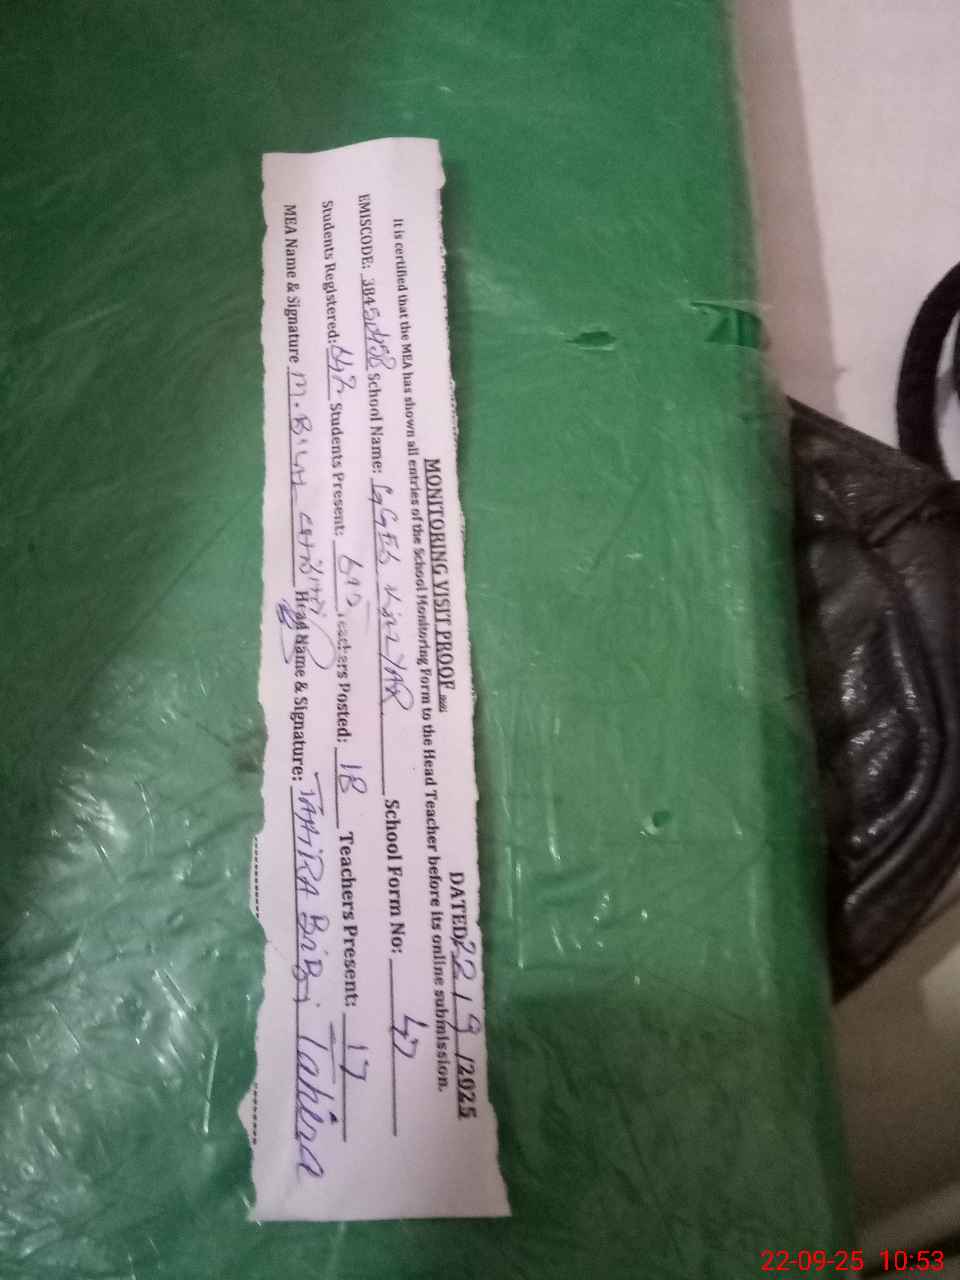 MONITORING VISIT PROOF DATED 22/9/2025
It is certified that the MEA has shown all entries of the School Monitoring Form to the Head Teacher before its online submission.
EMISCODE: School Name: School Form No: 47
Students Registered: Students Present: Teachers Posted: 18 Teachers Present: 17
MEA Name & Signature M. Head Name & Signature: TAHIRA BiBi Tahira
22-09-25 10:53